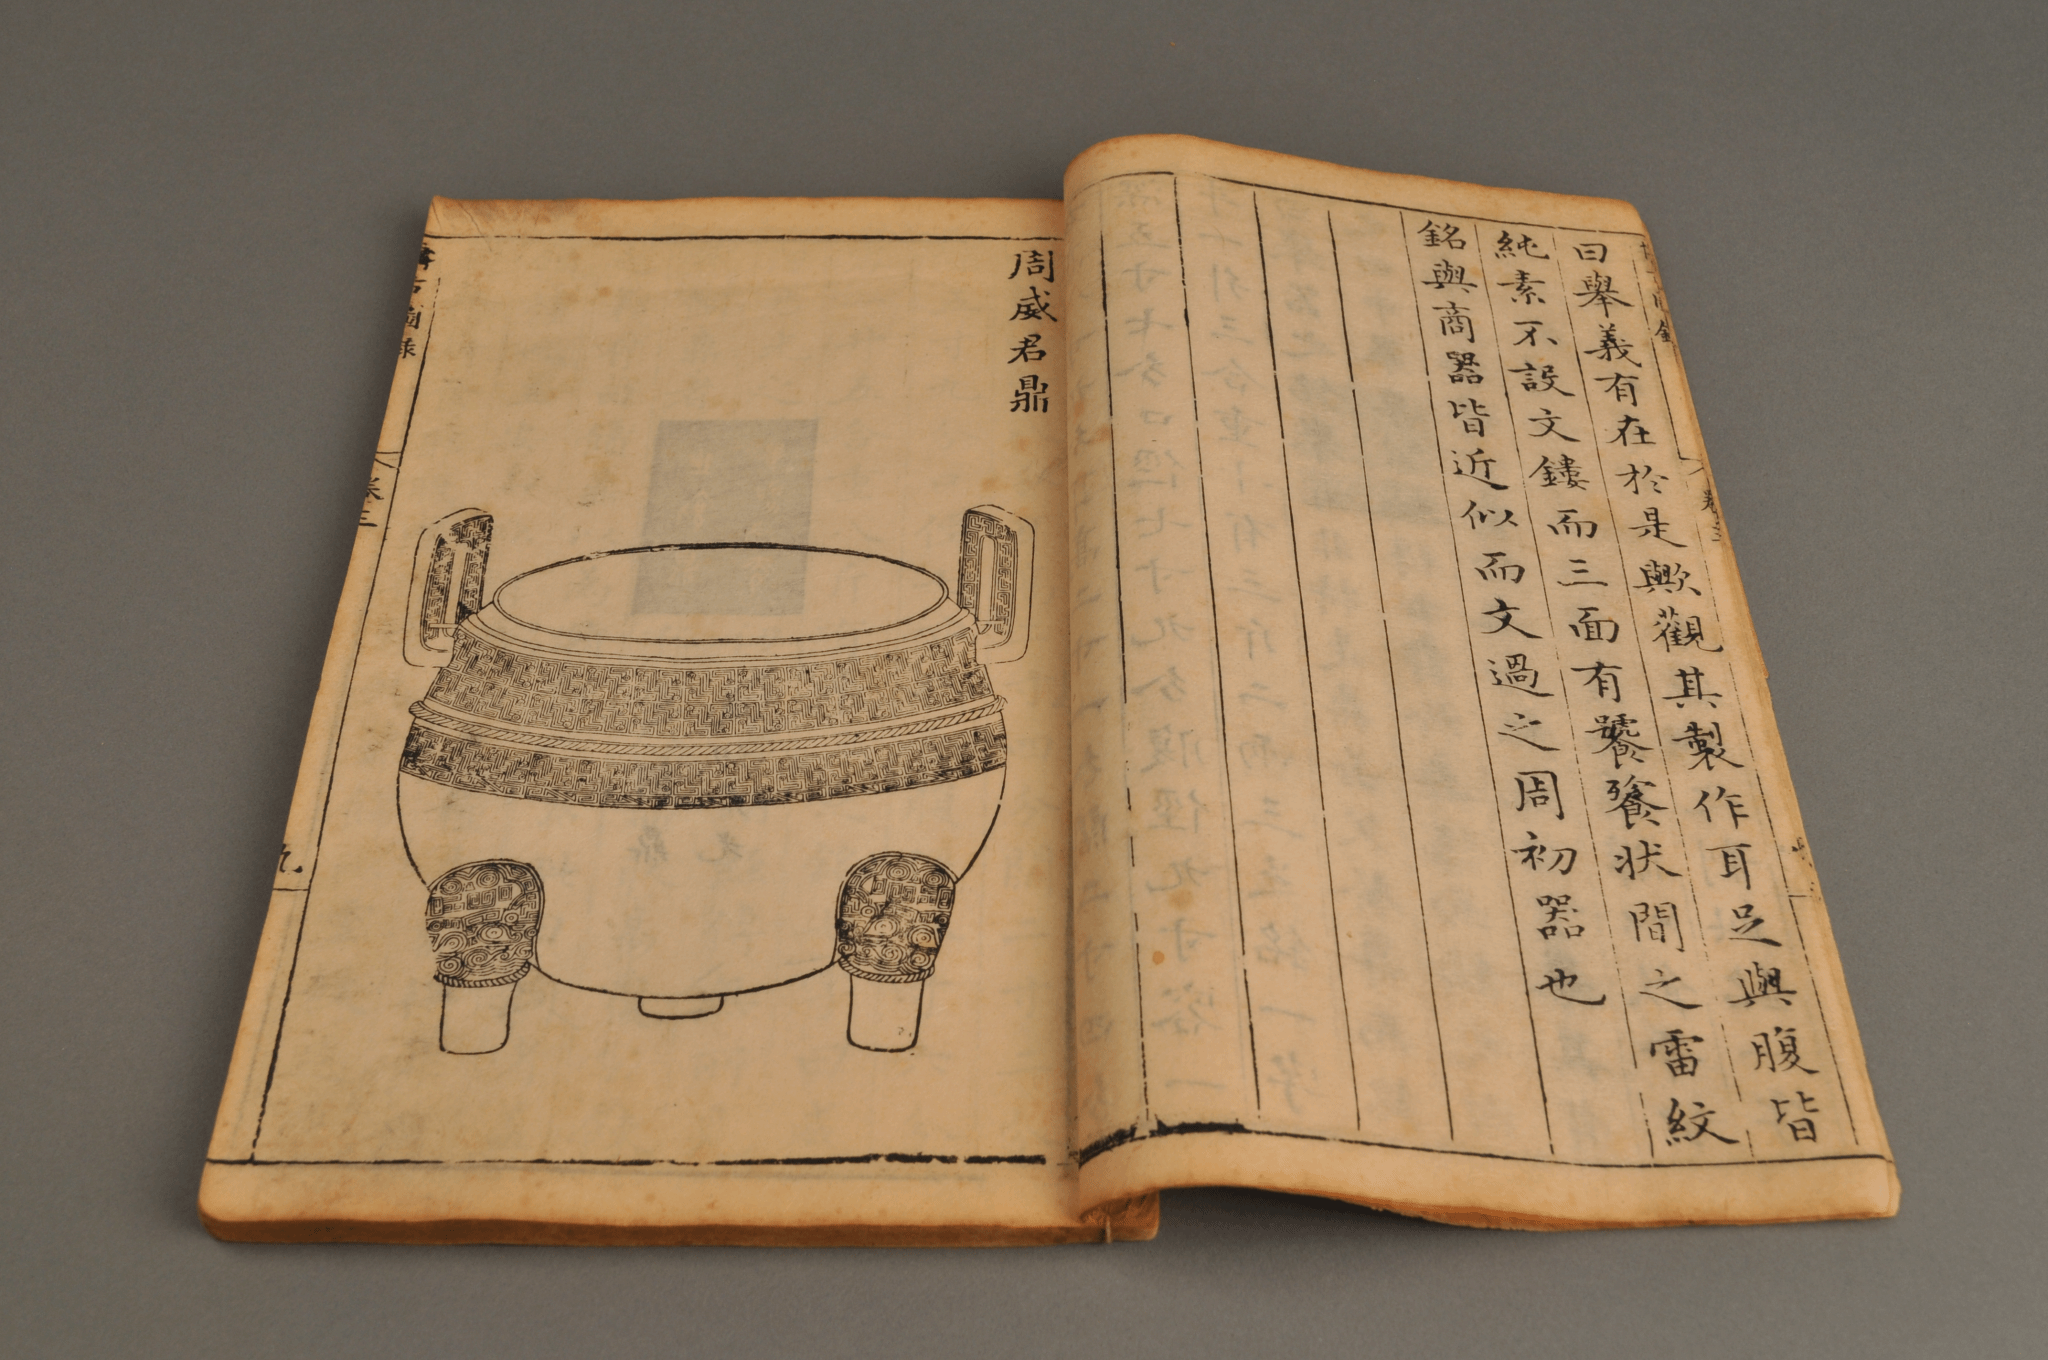 曰舉義有在於是歟觀其製作耳足與腹皆
純素不設文鏤而三面有饕餮狀間之雷紋
銘與商器皆近似而文過之周初器也
周威君鼎
卷三
九